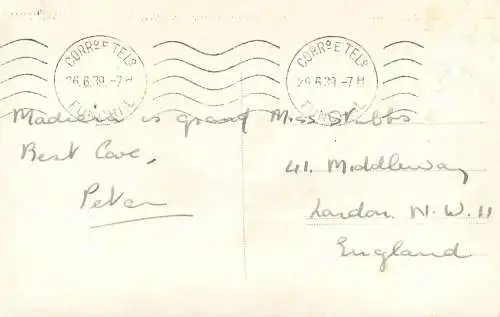 CORRº E TELº
26.6.39.-7H
FUNCHAL
CORRº E TELº
26.6.39.-7H
FUNCHAL
Madeira is grand
Best Love,
Peter
Miss Stubbs
41, Middleway
London N.W.11
England